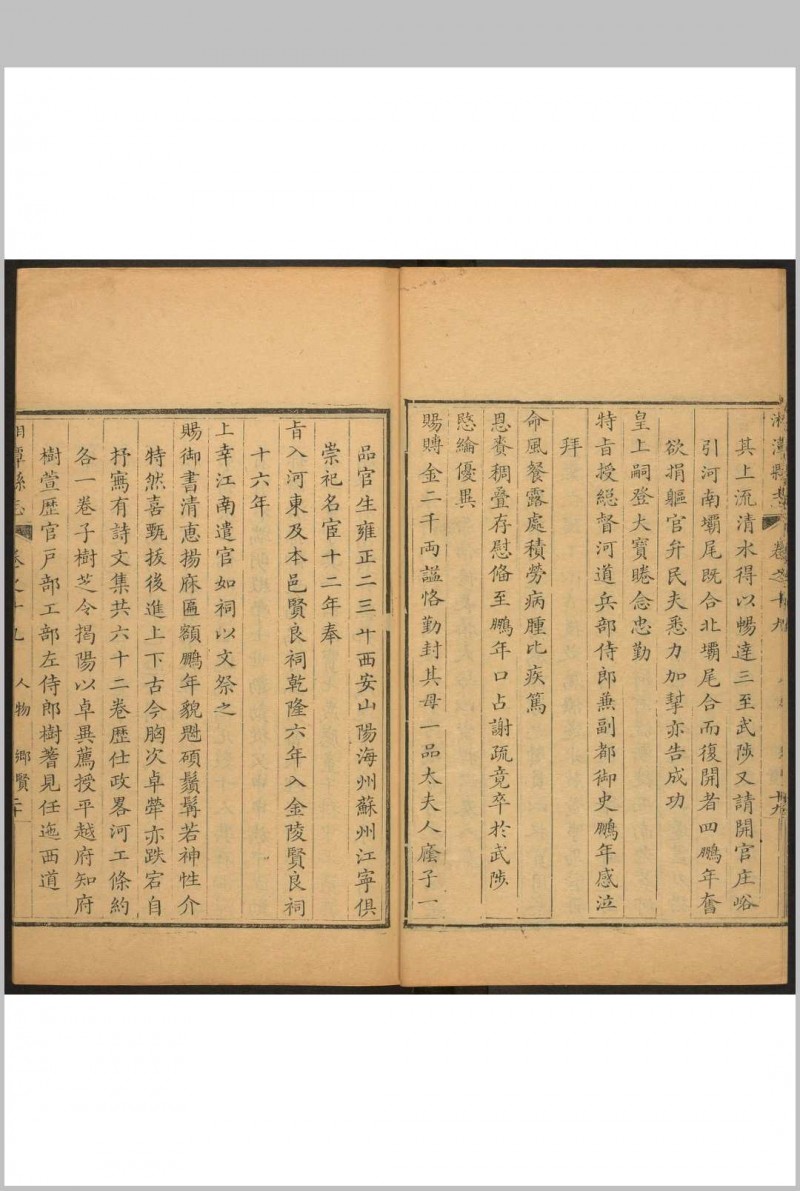 湘潭縣志 卷之十九
其上流清水得以暢達三至武陟又請開官庄峪
引河南壩尾既合北壩尾合而復開者四鵬年奮
欲捐軀官弁民夫悉力加揅亦告成功
皇上嗣登大寶睠念忠勤
特旨授総督河道兵部侍郎兼副都御史鵬年感泣
拜
命風餐露處積勞病腫比疾篤
恩賚稠疊存慰俻至鵬年口占謝疏竟卒於武陟
愍綸優異
賜賻金二千両謚恪勤封其母一品太夫人廕子一
品官生雍正二三年西安山陽海州蘇州江寧俱
崇祀名宦十二年奉
旨入河東及本邑賢良祠乾隆六年入金陵賢良祠
十六年
上幸江南遣官如祠以文祭之
賜御書清恵揚庥匾額鵬年貌魁碩鬚髯若神性介
特然喜甄拔後進上下古今胸次卓犖亦跌宕自
抒寫有詩文集共六十二卷歷仕政畧河工條約
各一卷子樹芝令揭陽以卓異薦授平越府知府
樹萱歷官戸部工部左侍郎樹蓍見任迤西道
湘潭縣志 卷之十九 人物 鄉賢 二十